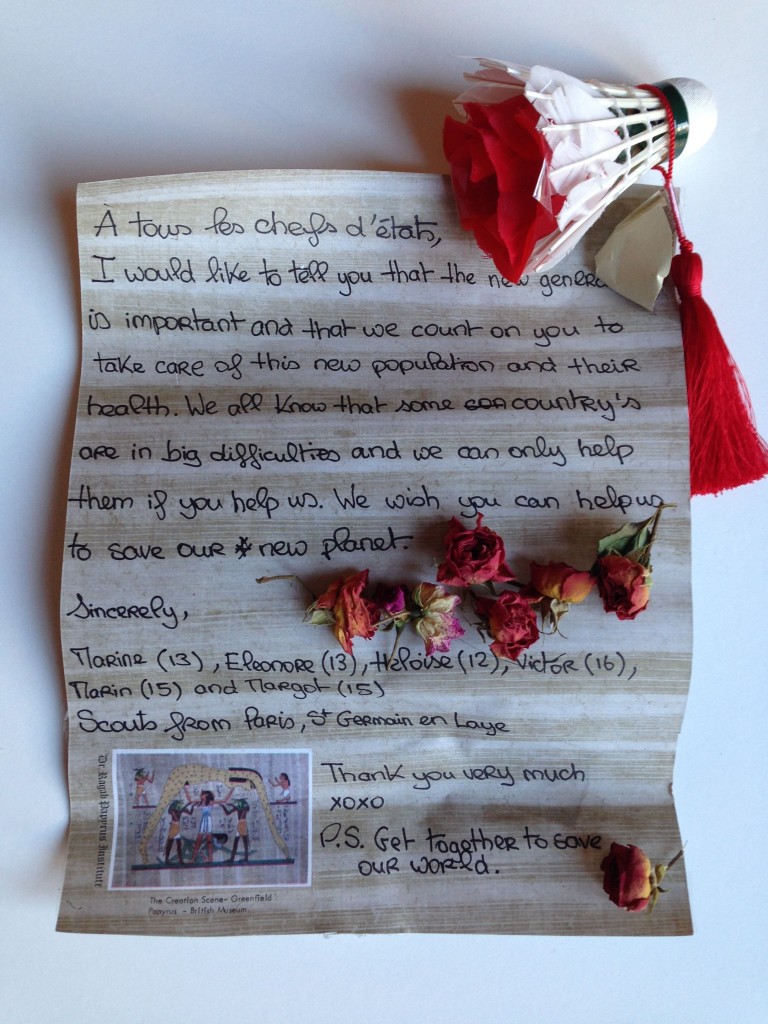 À tous les chefs d'états,
I would like to tell you that the new genera
is important and that we count on you to
take care of this new population and their
health. We all know that some country's
are in big difficulties and we can only help
them if you help us. We wish you can help us
to save our new planet.
Sincerely,
Marine (13), Eleonore (13), Héloïse (12), Victor (16),
Marin (15) and Margot (15)
Scouts from Paris, St Germain en Laye
Dr. Ragab Papyrus Institute
The Creation Scene- Greenfield
Papyrus - British Museum
Thank you very much
xoxo
P.S. Get together to save
our world.